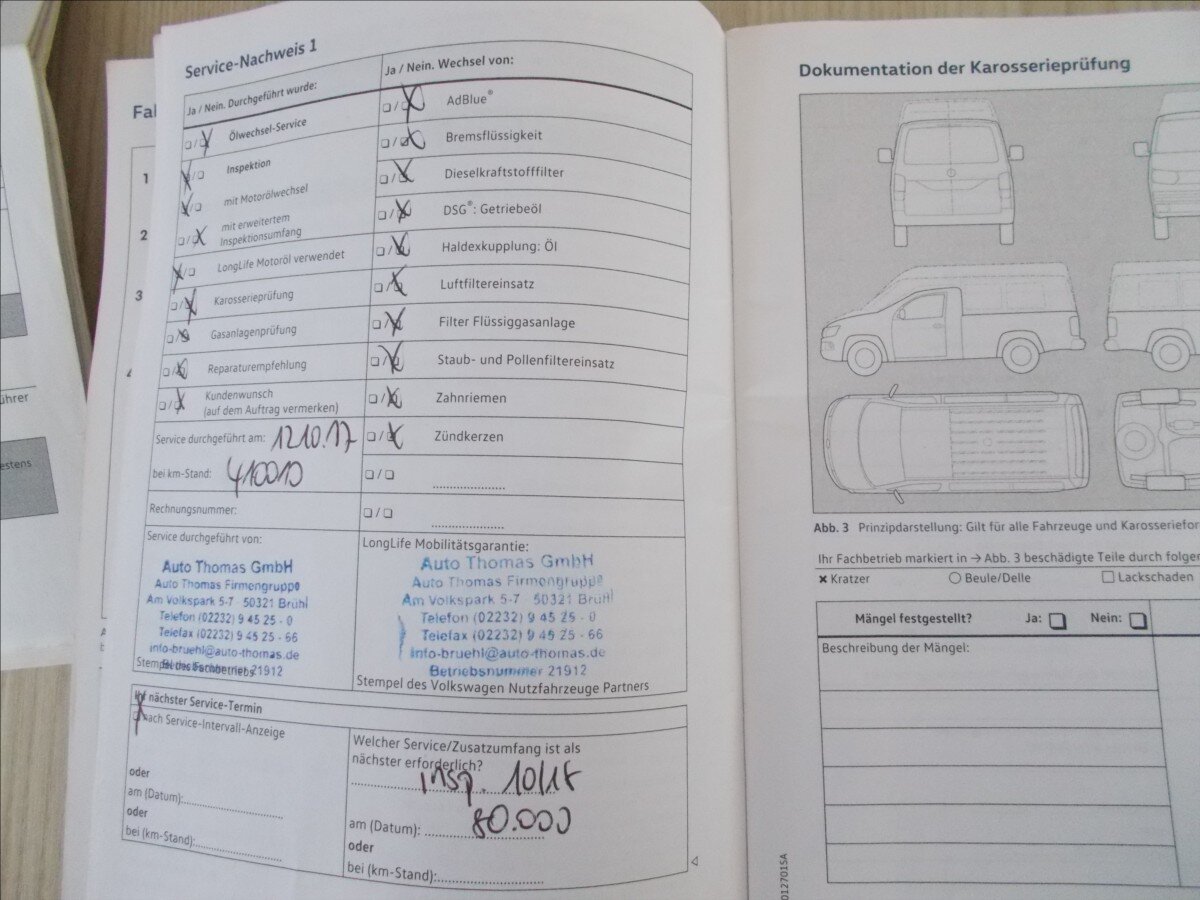 Service-Nachweis 1
Ja / Nein. Durchgeführt wurde:
Ölwechsel-Service
Inspektion
mit Motorölwechsel
mit erweitertem
Inspektionsumfang
LongLife Motoröl verwendet
Karosserieprüfung
Gasanlagenprüfung
Reparaturempfehlung
Kundenwunsch
(auf dem Auftrag vermerken)
Service durchgeführt am: 12.10.17
bei km-Stand: 41000
Rechnungsnummer:
Service durchgeführt von:
Auto Thomas GmbH
Auto Thomas Firmengruppe
Am Volkspark 5-7 · 50321 Brühl
Telefon (02232) 9 45 25 - 0
Telefax (02232) 9 45 25 - 66
info-bruehl@auto-thomas.de
Betriebsnummer 21912
Stempel des Fachbetriebs
Ja / Nein. Wechsel von:
AdBlue®
Bremsflüssigkeit
Dieselkraftstofffilter
DSG®: Getriebeöl
Haldexkupplung: Öl
Luftfiltereinsatz
Filter Flüssiggasanlage
Staub- und Pollenfiltereinsatz
Zahnriemen
Zündkerzen
LongLife Mobilitätsgarantie:
Auto Thomas GmbH
Auto Thomas Firmengruppe
Am Volkspark 5-7 · 50321 Brühl
Telefon (02232) 9 45 25 - 0
Telefax (02232) 9 45 25 - 66
info-bruehl@auto-thomas.de
Betriebsnummer 21912
Stempel des Volkswagen Nutzfahrzeuge Partners
Ihr nächster Service-Termin
nach Service-Intervall-Anzeige
oder
am (Datum):
oder
bei (km-Stand):
Welcher Service/Zusatzumfang ist als
nächster erforderlich?
insp. 10/18
am (Datum): 80.000
oder
bei (km-Stand):
Fal
1
2
3
4
ührer
estens
Dokumentation der Karosserieprüfung
Abb. 3 Prinzipdarstellung: Gilt für alle Fahrzeuge und Karosseriefor
Ihr Fachbetrieb markiert in → Abb. 3 beschädigte Teile durch folgen
× Kratzer
○ Beule/Delle
□ Lackschaden
Mängel festgestellt? Ja: □ Nein: □
Beschreibung der Mängel:
012701SA